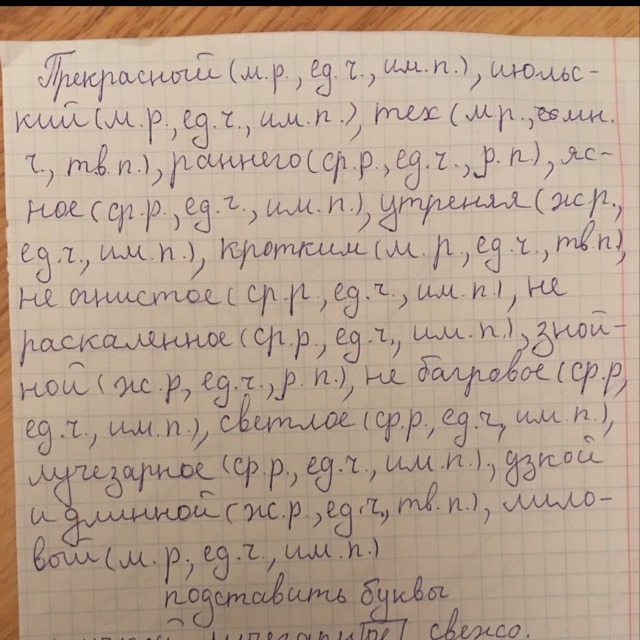 Прекрасный (м.р., ед.ч., им.п.), июльс-
кий (м.р., ед.ч., им.п.), тех (м р., мн.
ч, тв.п.), раннего (ср.р., ед.ч., р.п.), яс-
ное (ср.р., ед.ч., им.п.), утреняя (ж р.,
ед.ч., им.п.), кротким (м.р, ед.ч., тв.п),
не огнистое (ср.р, ед.ч., им.п), не
раскаленное (ср.р., ед.ч, им.п.), зной-
ной (ж.р, ед.ч., р.п.), не багровое (ср.р,
ед.ч., им.п.), светлое (ср.р., ед.ч, им.п.),
лучезарное (ср.р., ед.ч., им.п.), узкой
и длинной (ж.р., ед.ч, тв.п.), лило-
вый (м.р, ед.ч., им.п.)
подставить буквы
свежо.